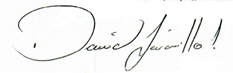 David Jaramillo!